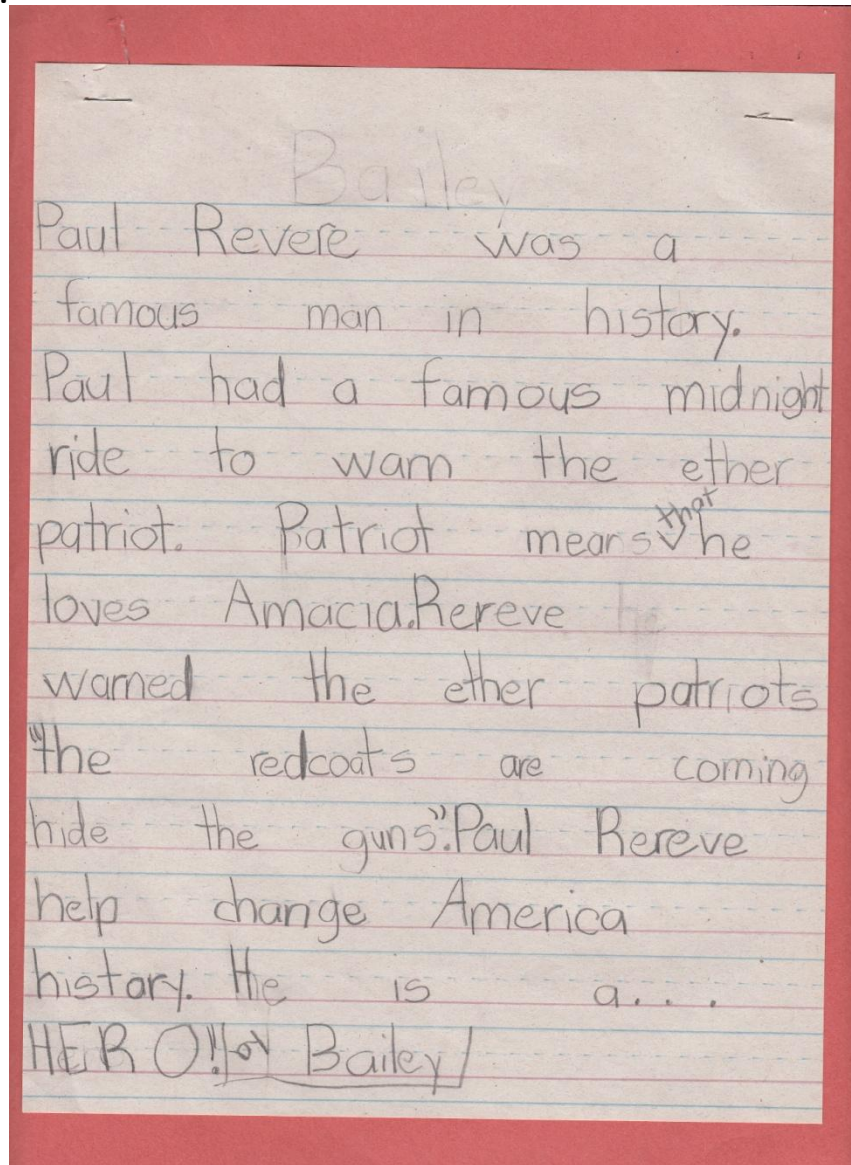 Bailey
Paul Revere was a
famous man in history.
Paul had a famous midnight
ride to warn the ether
patriot. Patriot means that he
loves Amacia. Rereve he
warned the ether patriots
"the redcoats are coming
hide the guns". Paul Rereve
help change America
history. He is a....
HERO! by Bailey